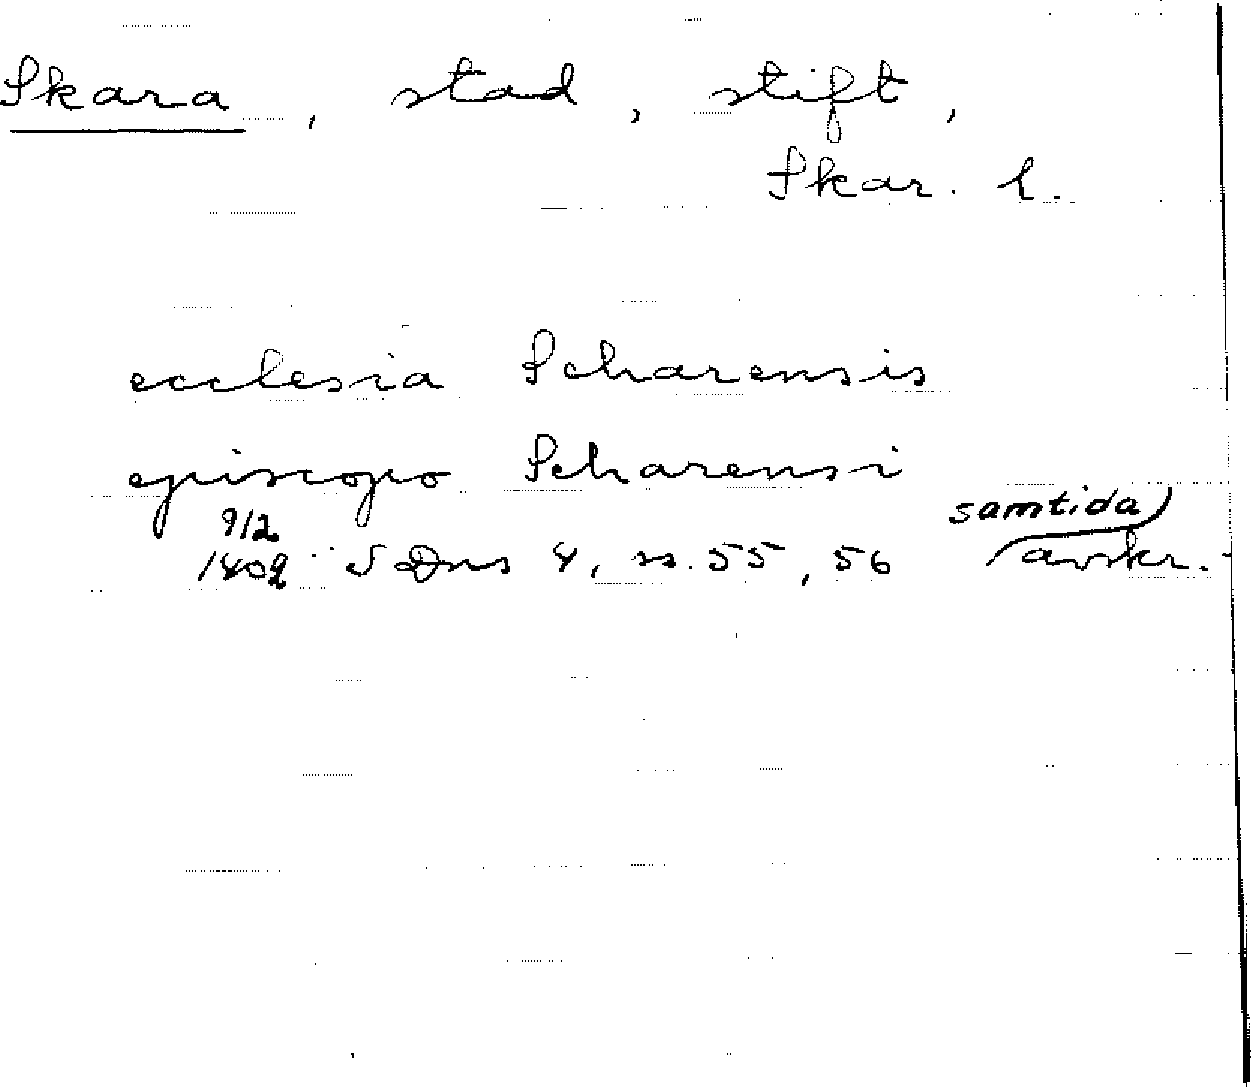 Skara, stad, stift,
Skar. l.
ecclesia Scharensis
episcopo Scharensi
9/2 samtida
1409 SDns 4, ss. 55, 56 avskr.